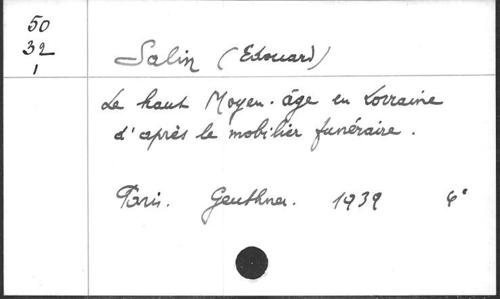 50
32
1
Salin (Edouard)
Le haut Moyen-âge en Lorraine
d'après le mobilier funéraire.
Paris. Geuthner. 1939 4°